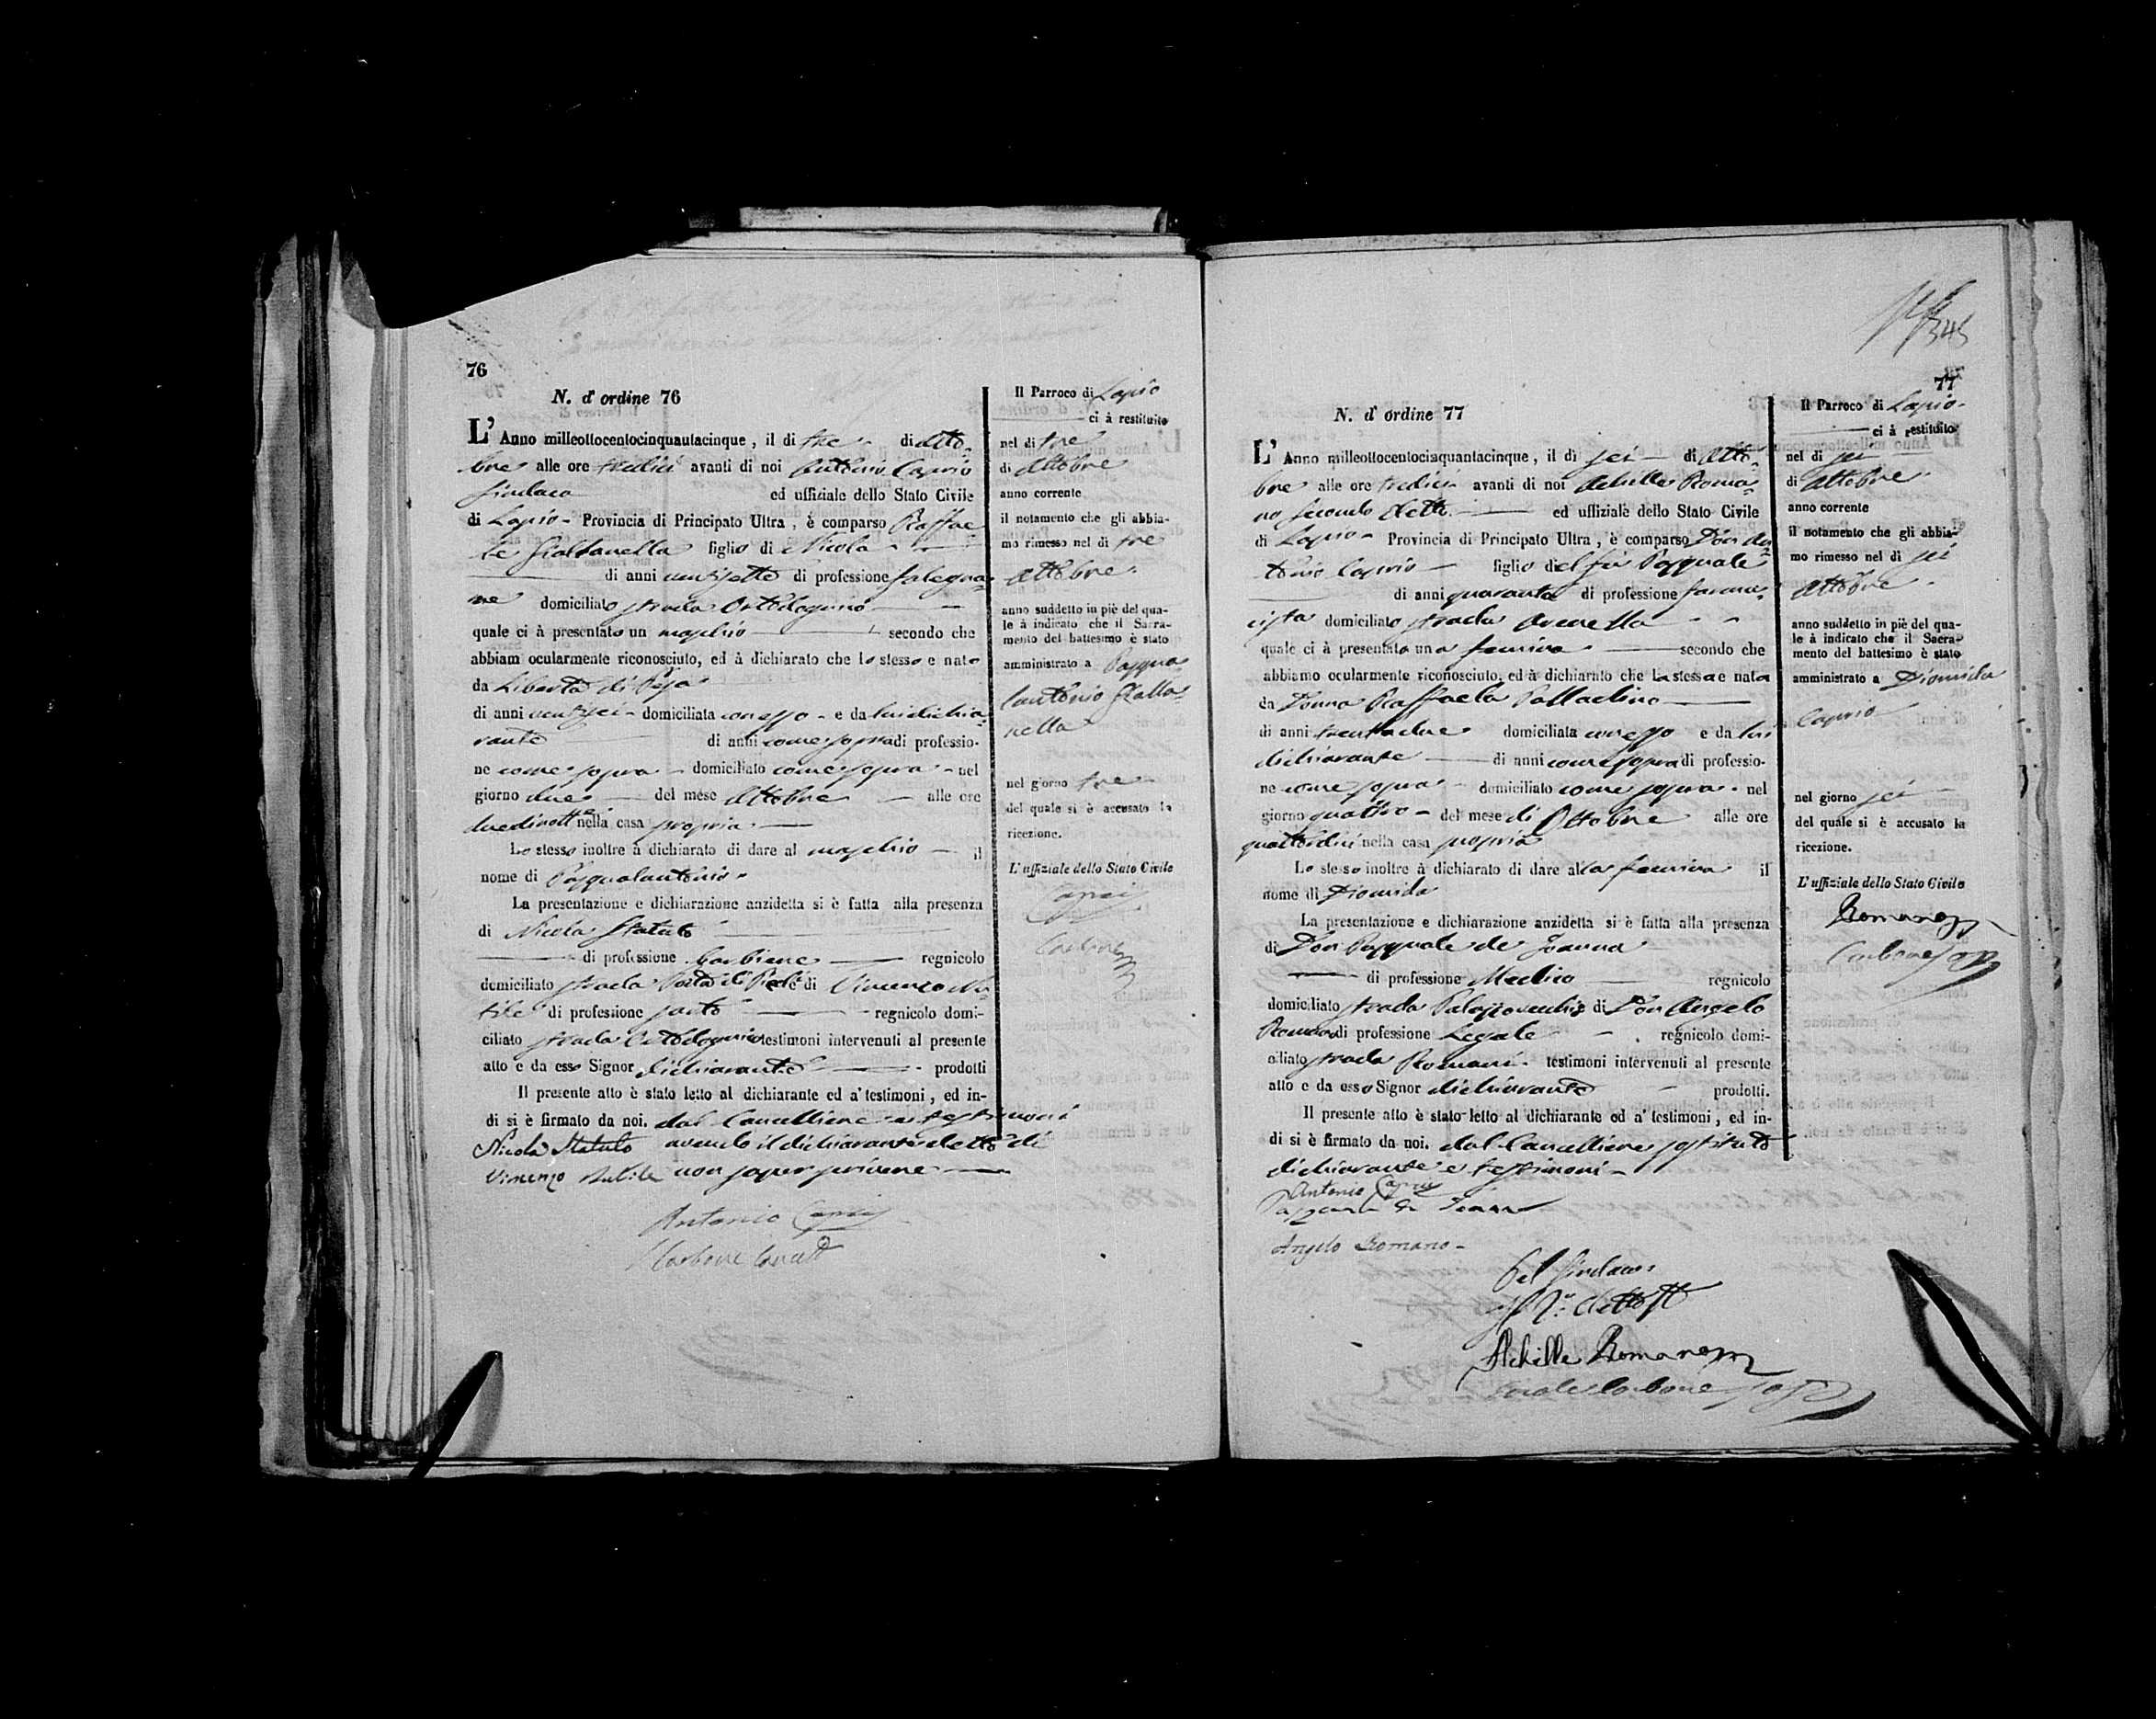 76
N. d' ordine 76
L' Anno milleottocentocinquantacinque, il di tre di Otto-
bre alle ore tredici avanti di noi Antonio Caprio
Sindaco ed uffiziale dello Stato Civile
di Lapio Provincia di Principato Ultra, è comparso Raffae
le figlio di Nicola
di anni ventisette di professione falegna-
me domiciliato strada
quale ci à presentato un maschio secondo che
abbiam ocularmente riconosciuto, ed à dichiarato che lo stesso e nato
da Libertà di
di anni ventisei domiciliata con esso e da lui dichia-
rante di anni come sopra di professio-
ne come sopra domiciliato come sopra nel
giorno due del mese Ottobre alle ore
nella casa propria
Lo stesso inoltre à dichiarato di dare al maschio il
nome di Pasqualantonio
La presentazione e dichiarazione anzidetta si è fatta alla presenza
di Nicola Statuto
di professione barbiere regnicolo
domiciliato strada Porta di e di Vincenzo Nu-
bile di professione sarto regnicolo domi-
ciliato strada testimoni intervenuti al presente
atto e da esso Signor dichiarante prodotti
Il presente atto è stato letto al dichiarante ed a' testimoni, ed in-
di si è firmato da noi. dal Cancelliere e testimoni
Nicola Statuto avendo il dichiarante detto di
Vincenzo Nubile non saper scrivere
Antonio Caprio
Carbone
Il Parroco di Lapio
ci à restituito
nel di tre
di Ottobre
anno corrente
il notamento che gli abbia-
mo rimesso nel di tre
Ottobre
anno suddetto in piè del qua-
le à indicato che il Sacra-
mento del battesimo è stato
amministrato a Pasqua
lantonio
nel giorno tre
del quale si è accusato la
ricezione.
L' uffiziale dello Stato Civile
Caprio
Carbone
345
77
N. d' ordine 77
L' Anno milleottocentocinquantacinque, il di sei di Otto-
bre alle ore tredici avanti di noi Achille Roma-
no secondo Eletto ed uffiziale dello Stato Civile
di Lapio Provincia di Principato Ultra, è comparso Don An-
tonio Caprio figlio del fu Pasquale
di anni quaranta di professione farma-
cista domiciliato strada
quale ci à presentato una femina secondo che
abbiamo ocularmente riconosciuto, ed à dichiarato che la stessa e nata
da Donna Raffaela Palladino
di anni trentadue domiciliata con esso e da lui
dichiarante di anni come sopra di professio-
ne come sopra domiciliato come sopra nel
giorno quattro del mese di Ottobre alle ore
quattordici nella casa propria
Lo stesso inoltre à dichiarato di dare alla femina il
nome di Diomida
La presentazione e dichiarazione anzidetta si è fatta alla presenza
di Don Pasquale de Joanna
di professione Medico regnicolo
domiciliato strada Palazzovecchio e di Don Angelo
Romano di professione Legale regnicolo domi-
ciliato strada Romani testimoni intervenuti al presente
atto e da esso Signor dichiarante prodotti.
Il presente atto è stato letto al dichiarante ed a' testimoni, ed in-
di si è firmato da noi. dal Cancelliere sostituto
dichiarante e testimoni
Antonio Caprio
Angelo Romano
Pel Sindaco
Achille Romano
Carbone
Il Parroco di Lapio
ci à restituito
nel di sei
di Ottobre
anno corrente
il notamento che gli abbia-
mo rimesso nel di sei
Ottobre
anno suddetto in piè del qua-
le à indicato che il Sacra-
mento del battesimo è stato
amministrato a Diomida
Caprio
nel giorno sei
del quale si è accusato la
ricezione.
L' uffiziale dello Stato Civile
Romano
Carbone